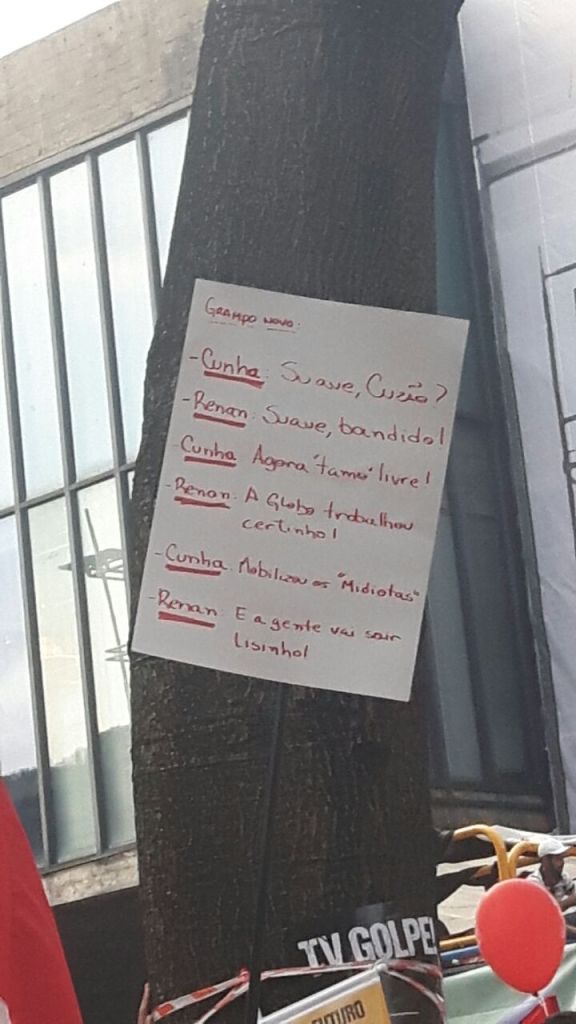 GRAMPO NOVO:
- Cunha: Suave, Cuzão?
- Renan: Suave, bandido!
Cunha Agora 'tamo' livre!
- Renan: A Globo trabalhou
certinho!
- Cunha. Mobilizou os "Midiotas"
- Renan: E a gente vai sair
Lisinho!
TV GOLPE!
FUTURO